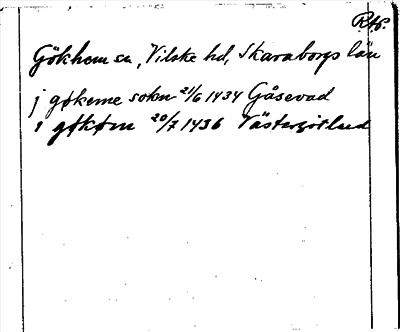 RAp.
Gökhem sn, Vilske hd, Skaraborgs län
j gøkeme sokn 21/6 1434 Gåsevad
i gøkøm 20/7 1436 Västergötland